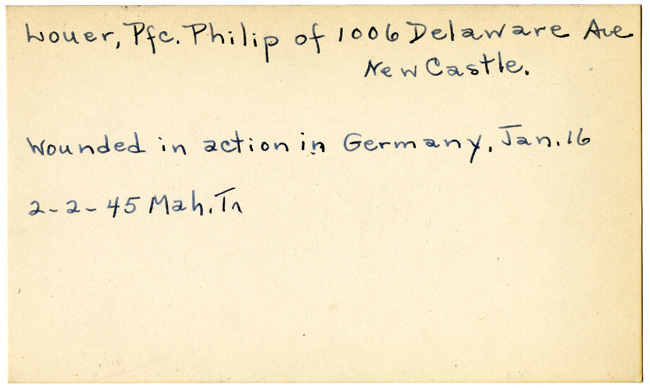 Louer, Pfc. Philip of 1006 Delaware Ave
New Castle.
Wounded in action in Germany, Jan. 16
2-2-45 Mah. Tr